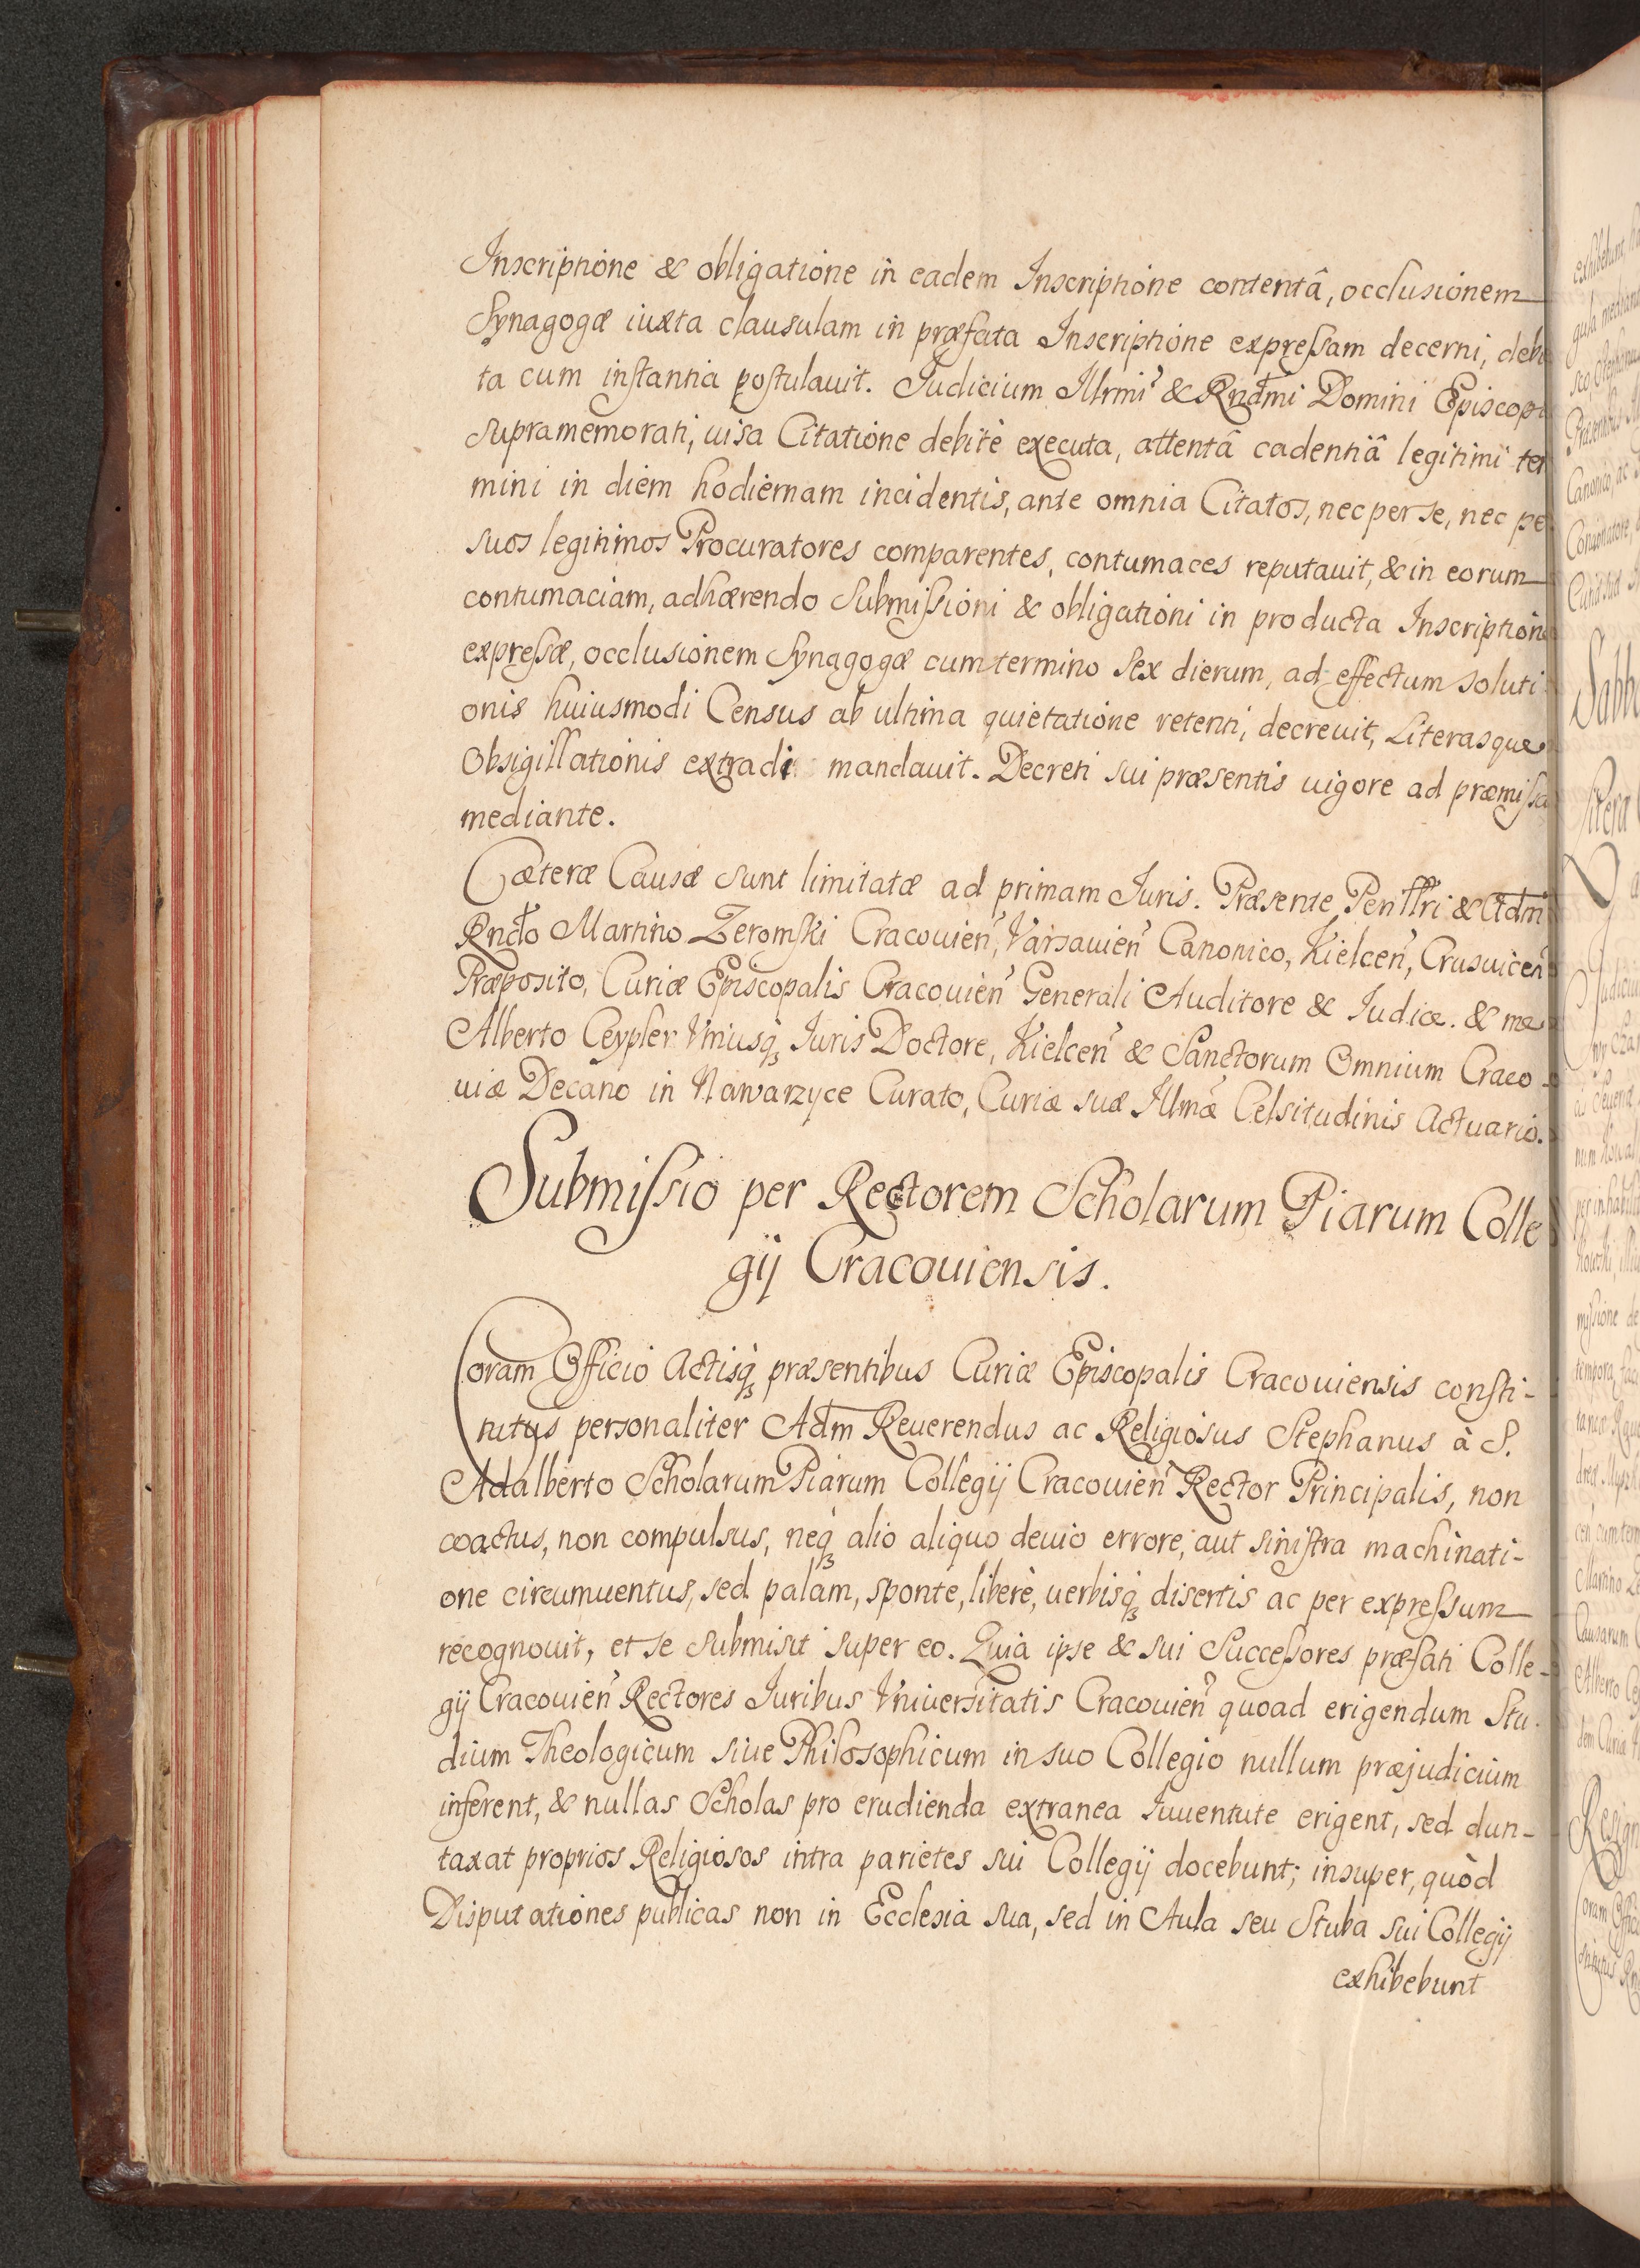 Inscriptione & obligatione in eadem Inscriptione contentâ, occlusionem
Synagogæ iuxta clausulam in præfata Inscriptione expressam decerni, debi
ta cum instantia postulauit. Judicium Illrmi & Rndmi Domini Episcopi
supramemorati, uisa Citatione debitè executa, attentâ cadentiâ legitimi ter
mini in diem hodiernam incidentis, ante omnia Citatos, nec per se, nec pe
suos legitimos Procuratores comparentes, contumaces reputauit, & in eorum
contumaciam, adhærendo Submissioni & obligationi in producta Inscriptione
expressæ, occlusionem Synagogæ cum termino sex dierum, ad effectum soluti
onis huiusmodi Census ab ultima quietatione retenti, decreuit, Literasque
Obsigillationis extradi mandauit. Decreti sui præsentis uigore ad præmissa
mediante.
Cæteræ Causæ sunt limitatæ ad primam Juris. Præsente Penllri & Adm
Rndo Martino Zeromski Cracouien, Varsauien Canonico, Kielcen, Crusuicen
Præposito, Curiæ Episcopalis Cracouien Generali Auditore & Judice. & me
Alberto Ceypler Vtriusq3 Juris Doctore, Kielcen & Sanctorum Omnium Craco-
uiæ Decano in Nawarzyce Curato, Curiæ suæ Illmæ Celsitudinis Actuario.
Submissio per Rectorem Scholarum Piarum Colle
gij Cracouiensis.
Coram Officio Actisq3 præsentibus Curiæ Episcopalis Cracouiensis consti-
tutus personaliter Adm Reuerendus ac Religiosus Stephanus à S.
Adalberto Scholarum Piarum Collegij Cracouien Rector Principalis, non
coactus, non compulsus, neq3 alio aliquo deuio errore, aut sinistra machinati-
one circumuentus, sed palàm, sponte, liberè, uerbisq3 disertis ac per expressum
recognouit, et se submisit super eo. Quia ipse & sui Successores præfati Colle-
gij Cracouien Rectores Juribus Vniuersitatis Cracouien quoad erigendum Stu-
dium Theologicum siue Philosophicum in suo Collegio nullum præjudicium
inferent, & nullas Scholas pro erudienda extranea Juuentute erigent, sed dun-
taxat proprios Religiosos intra parietes sui Collegij docebunt; insuper, quòd
Disputationes publicas non in Ecclesia sua, sed in Aula seu Stuba sui Collegij
exhibebunt